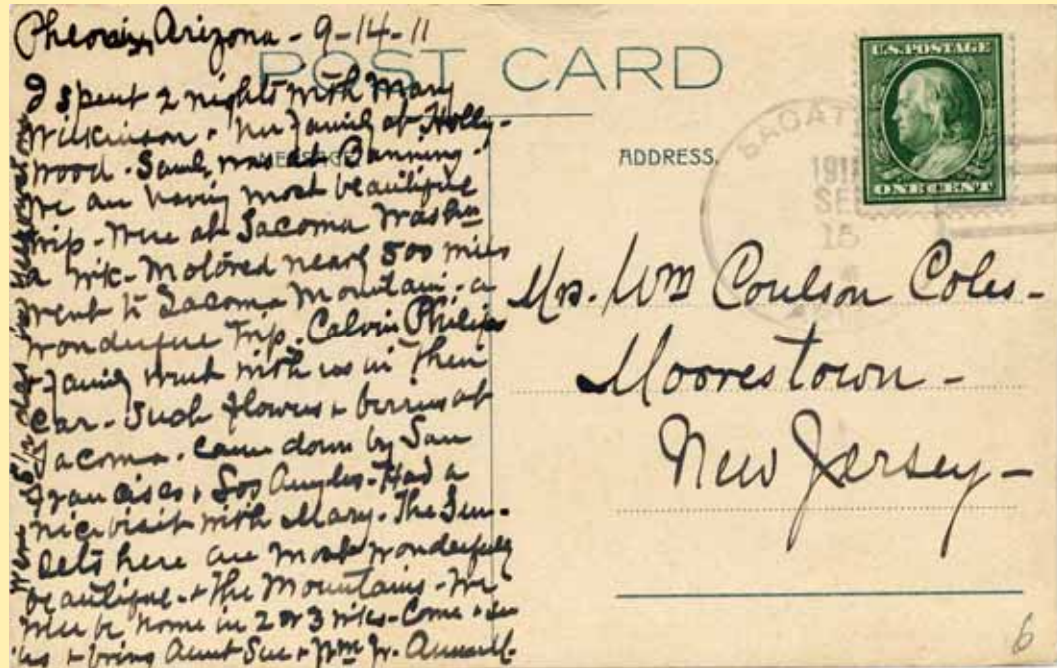 Pheonix, Arizona - 9-14-11
POST CARD
I spent 2 nights with Mary
Wilkinson + her family at Holly-
wood. Saul, was at Banning.
MESSAGE
We are having most beautiful
trip - Were at Tacoma Washn
a wk - Motored nearly 500 miles
went to Tacoma Mountain - a
wonderful trip. Calvin Philips
+ family went with us in their
car - Such flowers + berries at
Tacoma. Came down by San
Francisco + Los Angles - Had a
nice visit with Mary. The Sun-
sets here are most wonderfully
beautiful - + the Mountains - We
will be home in 2 or 3 wks - Come + see
us + bring Aunt Sue + Wm Jr.
Were
des in
ADDRESS.
U.S. POSTAGE
ONE CENT
1911
SE
15
Mrs. Wm Coulson Coles -
Moorestown -
New Jersey -
6